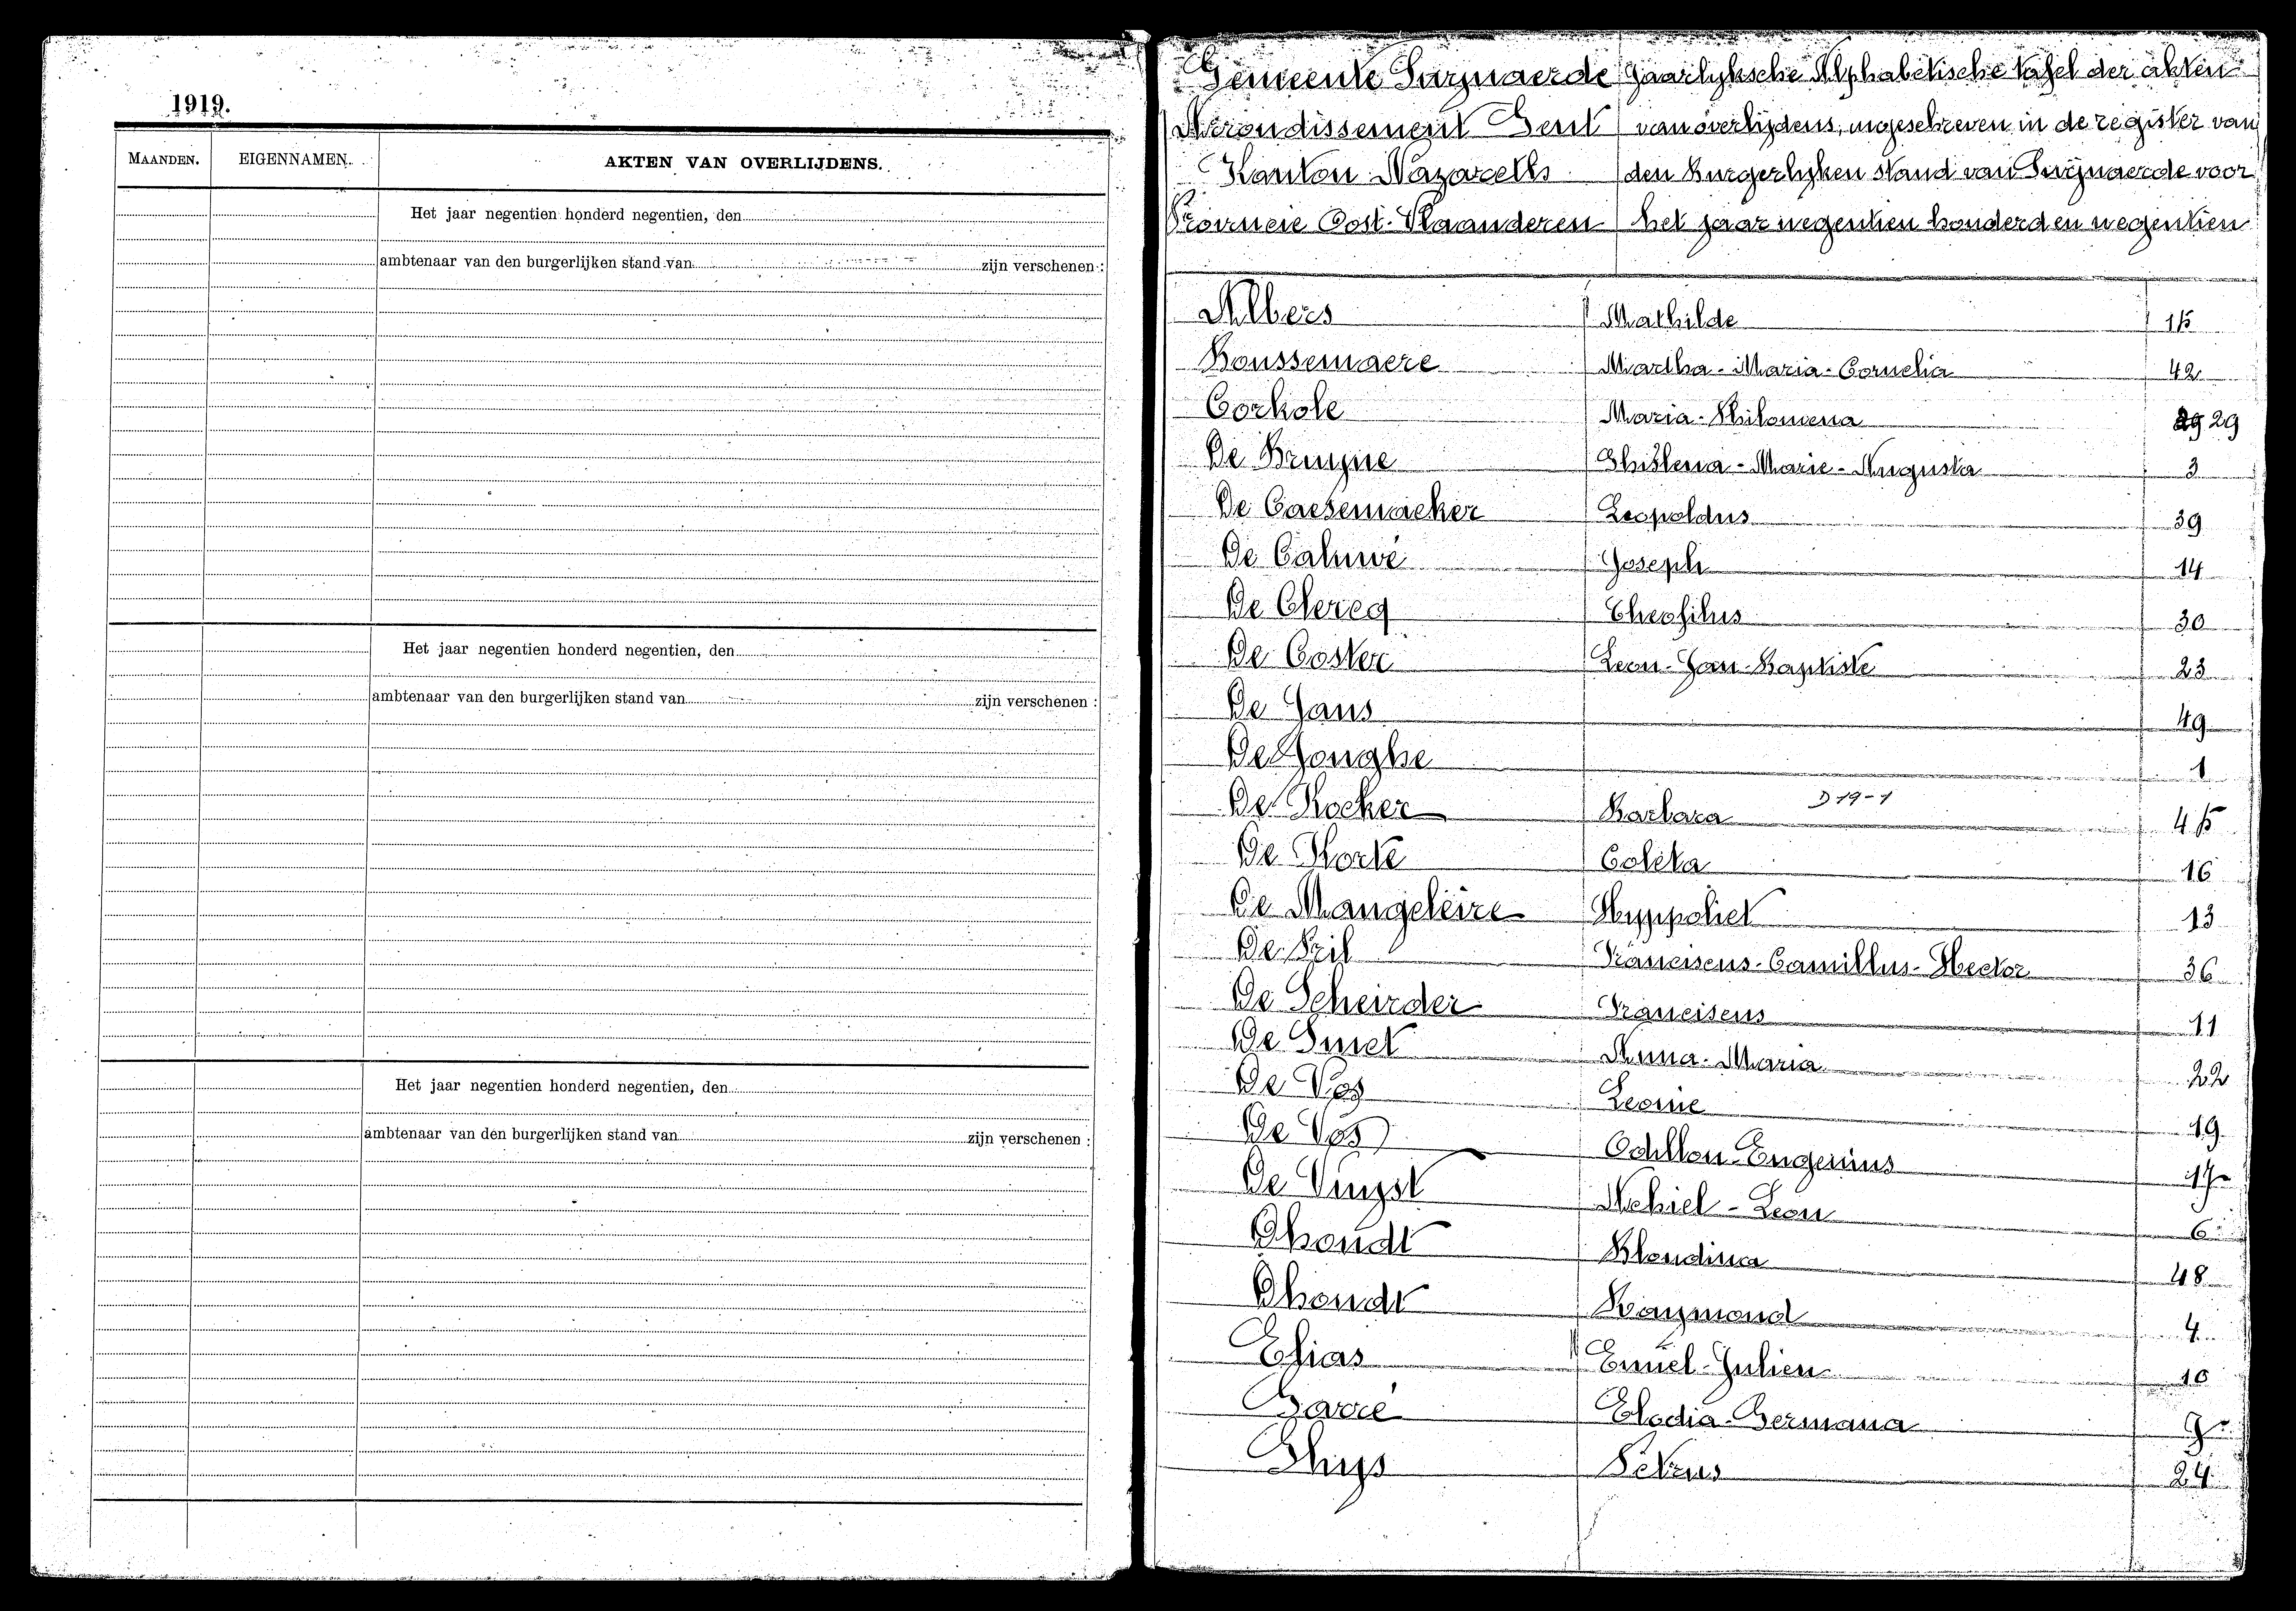 1919.
MAANDEN. EIGENNAMEN. AKTEN VAN OVERLIJDENS.
Het jaar negentien honderd negentien, den
ambtenaar van den burgerlijken stand van zijn verschenen :
Het jaar negentien honderd negentien, den
ambtenaar van den burgerlijken stand van zijn verschenen :
Het jaar negentien honderd negentien, den
ambtenaar van den burgerlijken stand van zijn verschenen :
Gemeente Swynaerde Jaarlyksche Alphabetische tafel der akten
Arrondissement Gent van overlijdens, ingeschreven in de register van
Kanton Nazareth den Burgerlyken stand van Swijnaerde voor
Provincie Oost-Vlaanderen het jaar negentien honderd en negentien
Albers Mathilde 15
Boussemaere Martha-Maria-Cornelia 42
Corhole Maria-Philomena 29 29
De Bruyne Ghislena-Marie-Augusta 3
De Caesemaeker Leopoldus 39
De Caluwé Joseph 14
De Clercq Theofilus 30
De Coster Leon-Jan-Baptiste 23
De Jans 49
De Jonghe 1
De Kocker Barbara D 19-1 45
De Korte Coleta 16
De Mangeleire Hyppoliet 13
De Pril Franciscus-Camillus-Hector 36
De Scheirder Franciscus 11
De Smet Anna-Maria 22
De Vos Leonie 19
De Vos Odillon-Eugenius 17
De Vuyst Achiel-Leon 6
Dhondt Blondina 48
Dhondt Raymond 4
Elias Emiel-Julien 10
Garré Elodia-Germana 9
Ghys Petrus 24